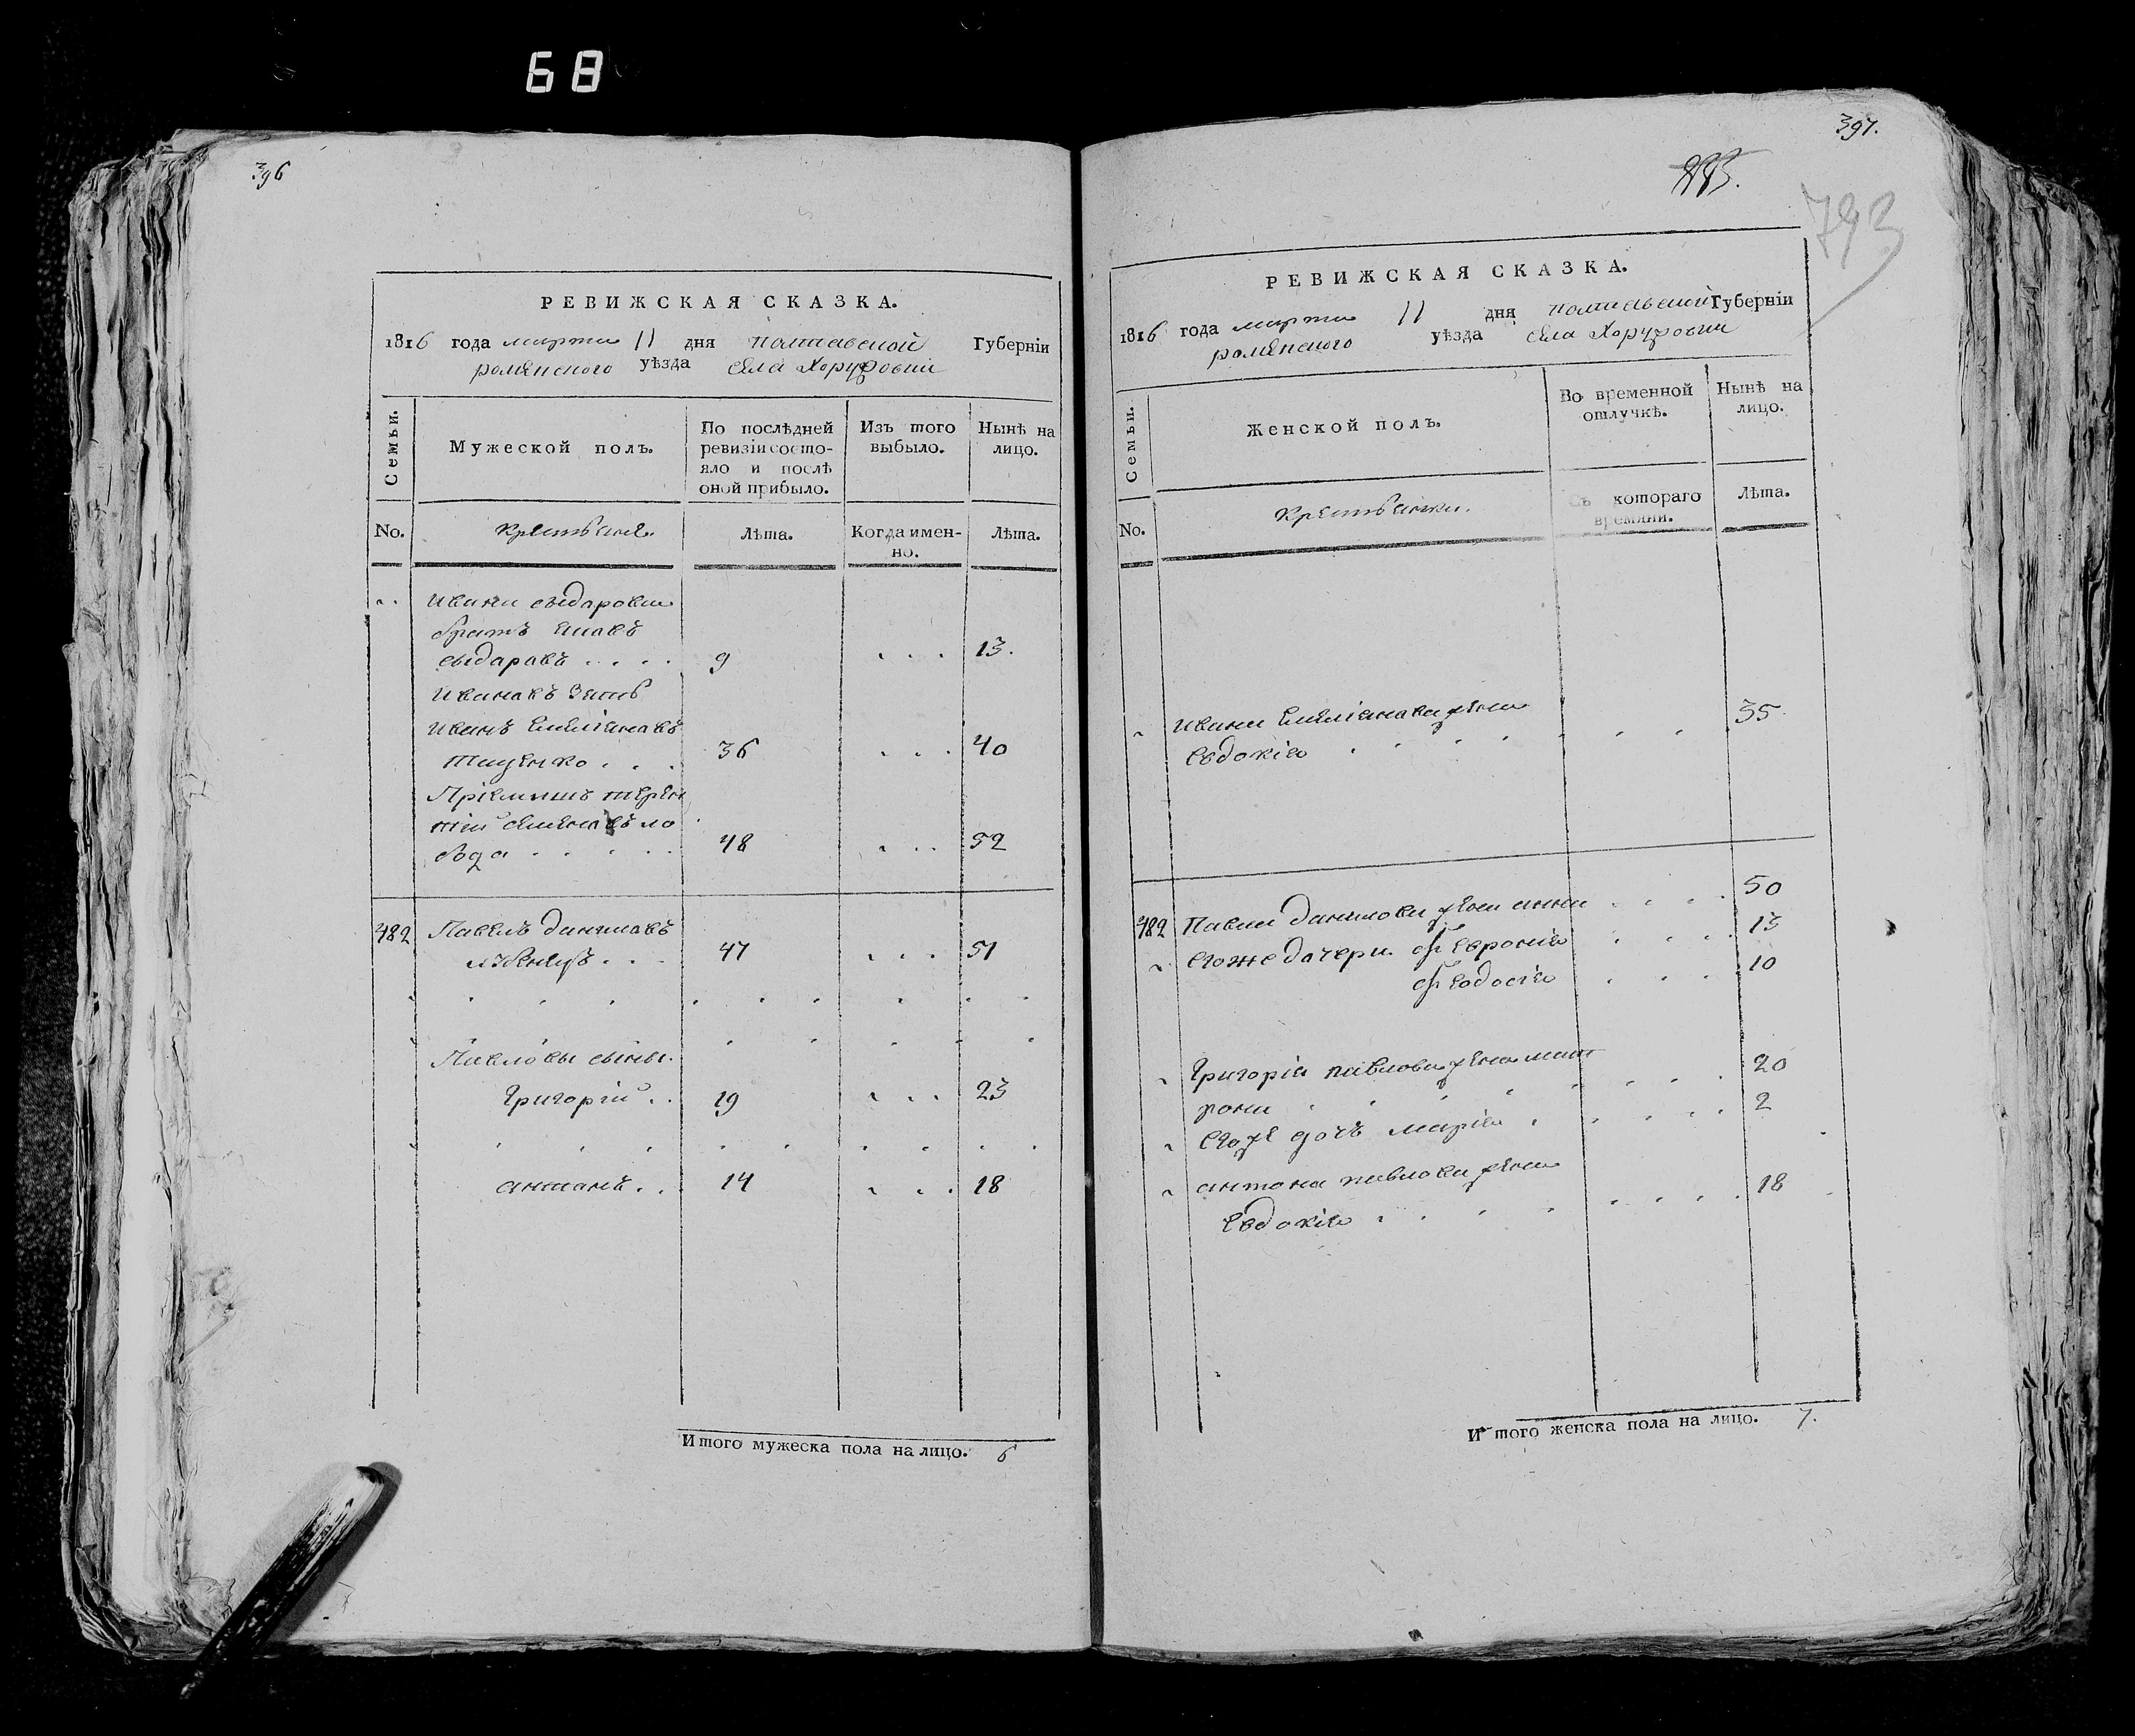 68
396
РЕВИЖСКАЯ СКАЗКА.
1816 года марта 11 дня полтавской Губерніи
роменского уѣзда села Хоружовки
Семьи.
Мужеской полъ.
По послѣдней ревизіи состо-
яло и послѣ
оной прибыло.
Изъ того
выбыло.
Нынѣ на
лицо.
No.
Крестьяне.
Лѣта.
Когда имен-
но.
Лѣта.
Ивана сыдарова
братъ
сыдаравъ . . . . 9 . . . 13.
Ивановъ зять
Иванъ Емеліановъ
тищенко . . . 36 . . . 40
Пріемышъ терен
тій семеновъ ло
бода . . . . . 48 . . . 52
482 Павелъ даниловъ
. . . 47 . . . 51
Павловы сыны.
Григорій . . 19 . . . 23
антонъ . . 14 . . . 18
Итого мужеска пола на лицо. 6
397.
793
РЕВИЖСКАЯ СКАЗКА.
1816 года марта 11 дня полтавской Губерніи
роменского уѣзда села Хоружовки
Семьи.
Женской полъ.
Во временной
отлучкѣ.
Нынѣ на
лицо.
No.
Крестьянки.
Съ котораго
времяни.
Лѣта.
Ивана Емеліанова жена
Евдокія . . . . . . . 35
482 Павла данилова жена анна . . . . 50
Егоже дочери Февронія . . . 13
Феодосія . . . 10
Григорія павлова жена мат
рона . . . . . . 20
Егоже дочь марія . . . . . 2
антона павлова жена
Евдокія . . . . . . . 18
И того женска пола на лицо. 7.